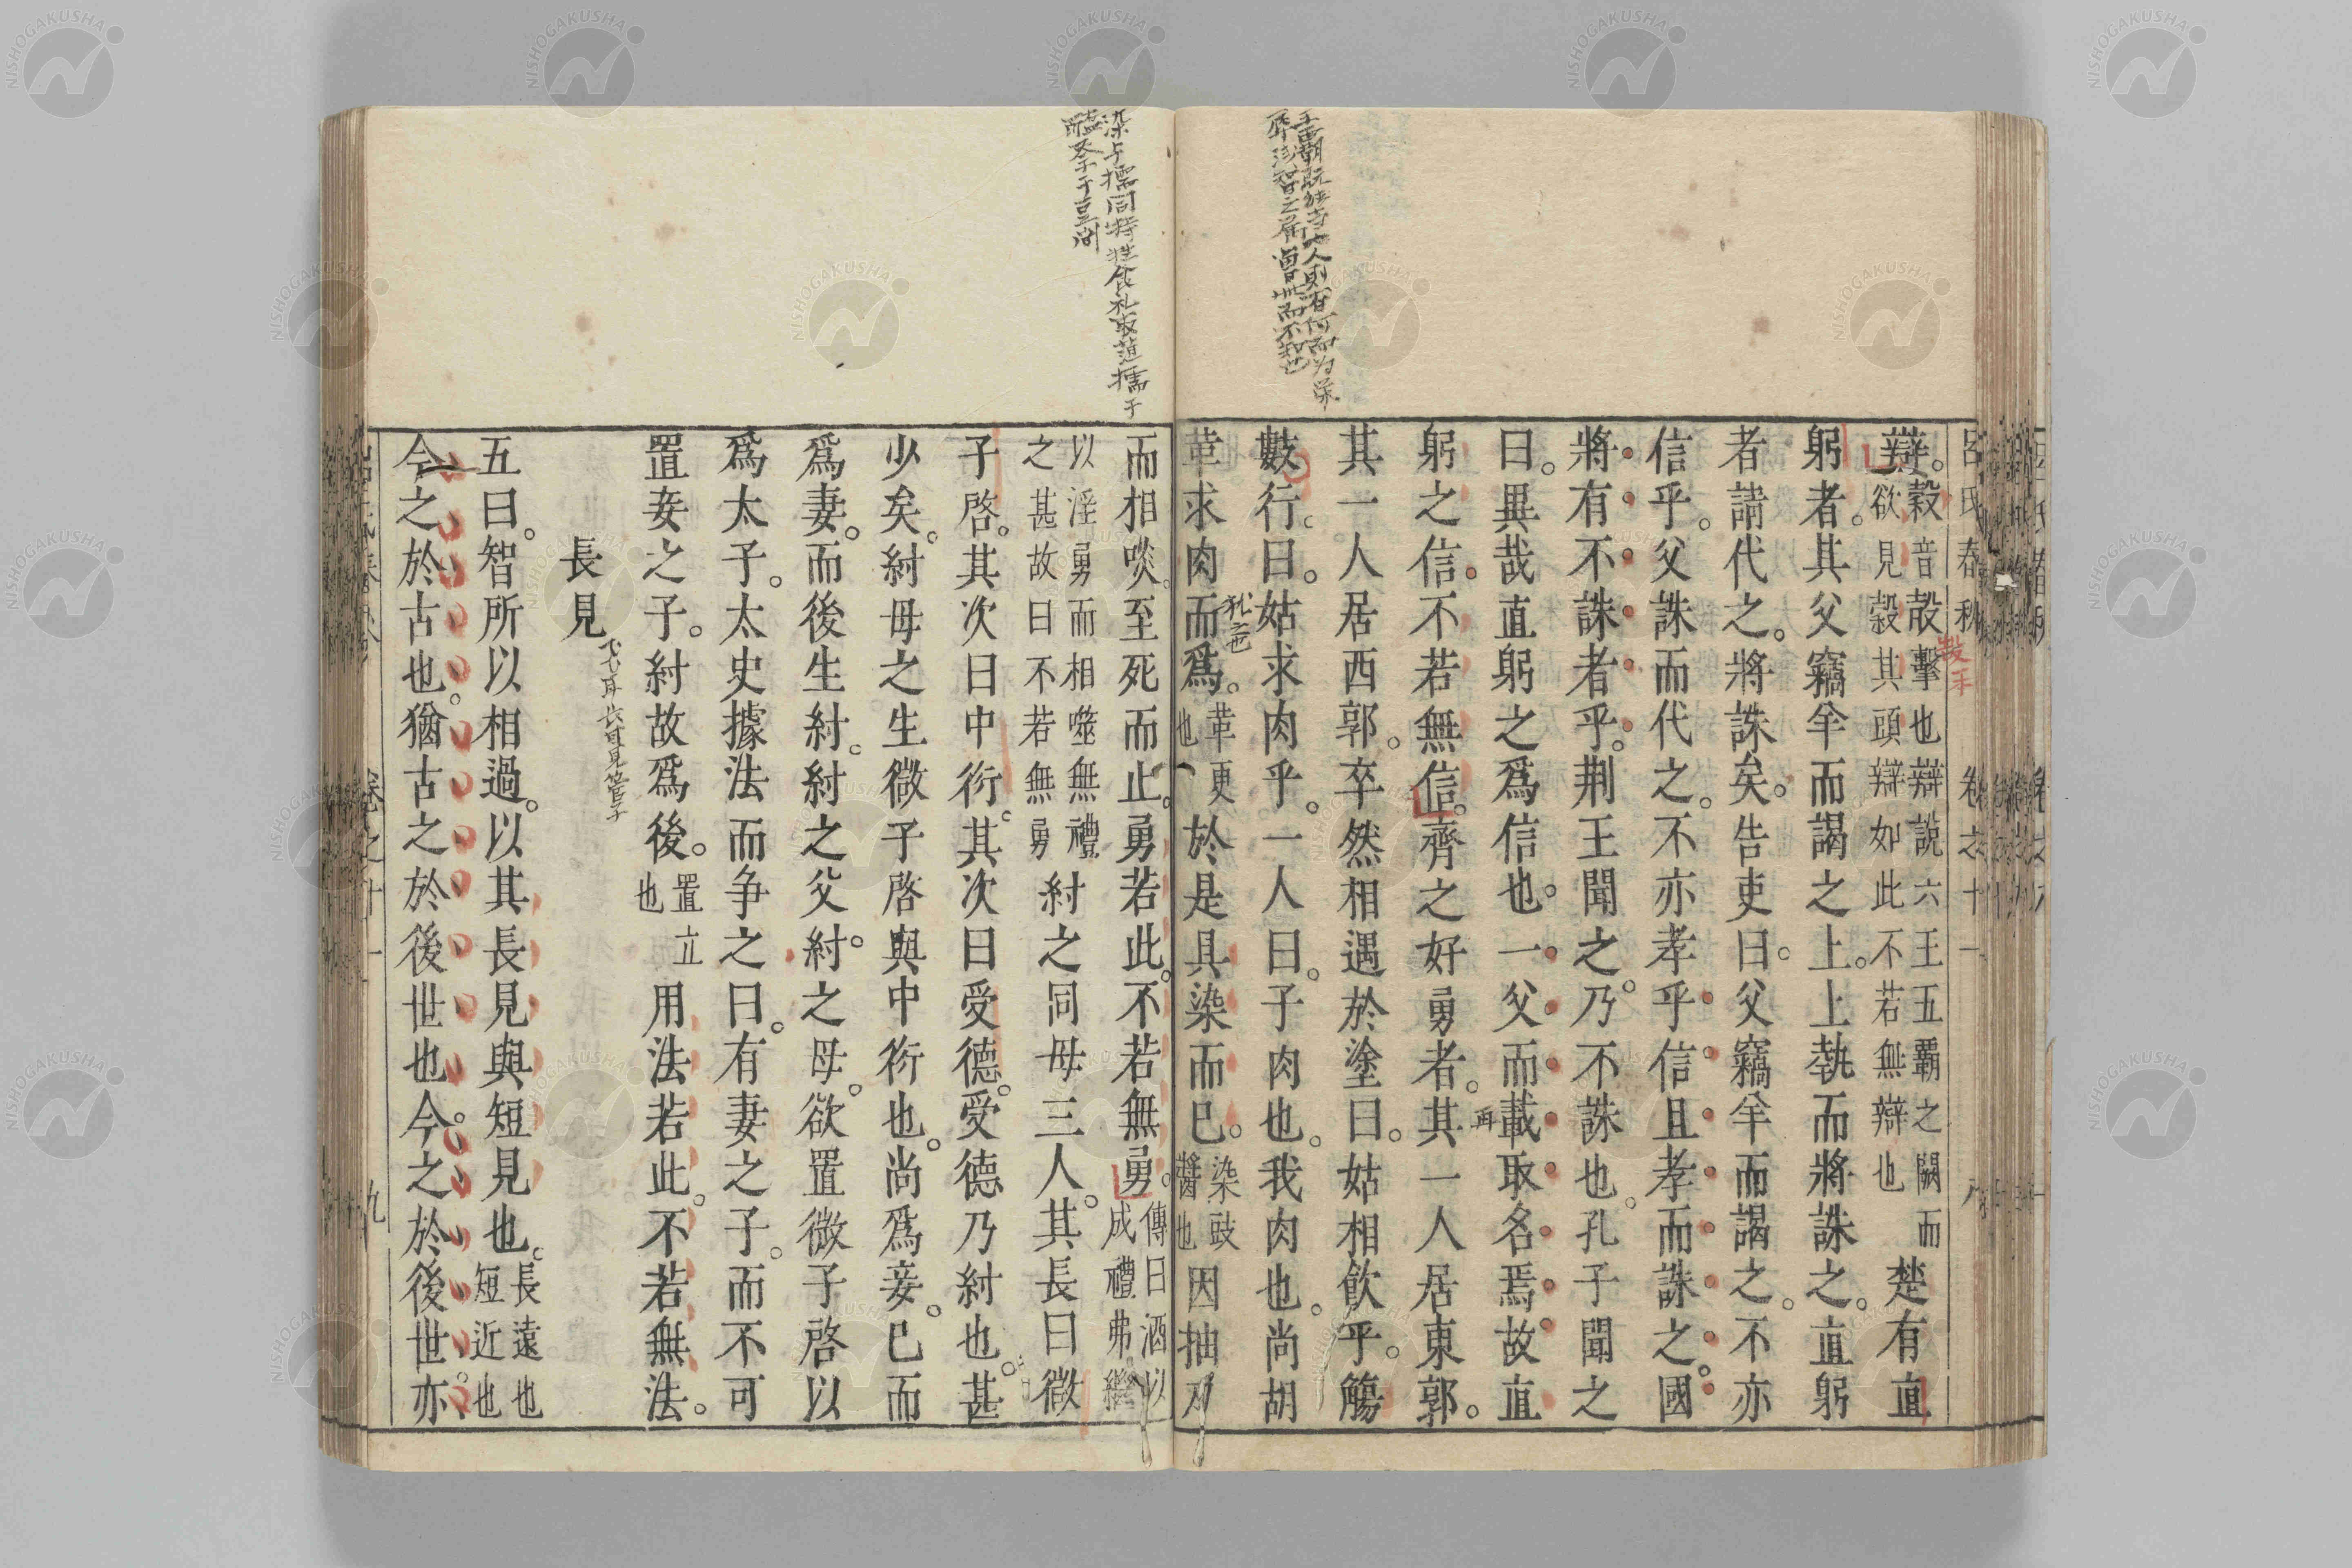 呂氏春秋 卷之十一 八
辯。穀音殼擊也辯說六王五霸之闕而
欲見穀其頭辯如此不若無辯也
楚有直
躬者。其父竊羊而謁之上。上執而將誅之。直躬
者請代之。將誅矣。告吏曰。父竊羊而謁之。不亦
信乎。父誅而代之。不亦孝乎信且孝而誅之。國
將有不誅者乎。荆王聞之。乃不誅也。孔子聞之
曰。異哉直躬之爲信也。一父而載取名焉故直
再
躬之信不若無信。齊之好勇者。其一人居東郭。
其一人居西郭。卒然相遇於塗曰。姑相飲乎。觴
數行。曰。姑求肉乎。一人曰。子肉也。我肉也。尚胡
革求肉而爲。
革更
也
於是具染而已。
染豉
醬也
因抽刀
而相啖。至死而止。勇若此。不若無勇。
傳曰酒以
成禮弗繼
以淫勇而相噬無禮
之甚故曰不若無勇
紂之同母三人。其長曰微
子啓。其次曰中衍。其次曰受德。受德乃紂也。甚
少矣。紂母之生微子啓與中衍也。尚爲妾。已而
爲妻。而後生紂。紂之父紂之母。欲置微子啓以
爲太子。太史據法而争之曰。有妻之子。而不可
置妾之子。紂故爲後。
置立
也
用法若此。不若無法。
長見
五曰。智所以相過。以其長見與短見也。
長遠也
短近也
今之於古也。猶古之於後世也。今之於後世。亦
卷之十一 九
NISHOGAKUSHA